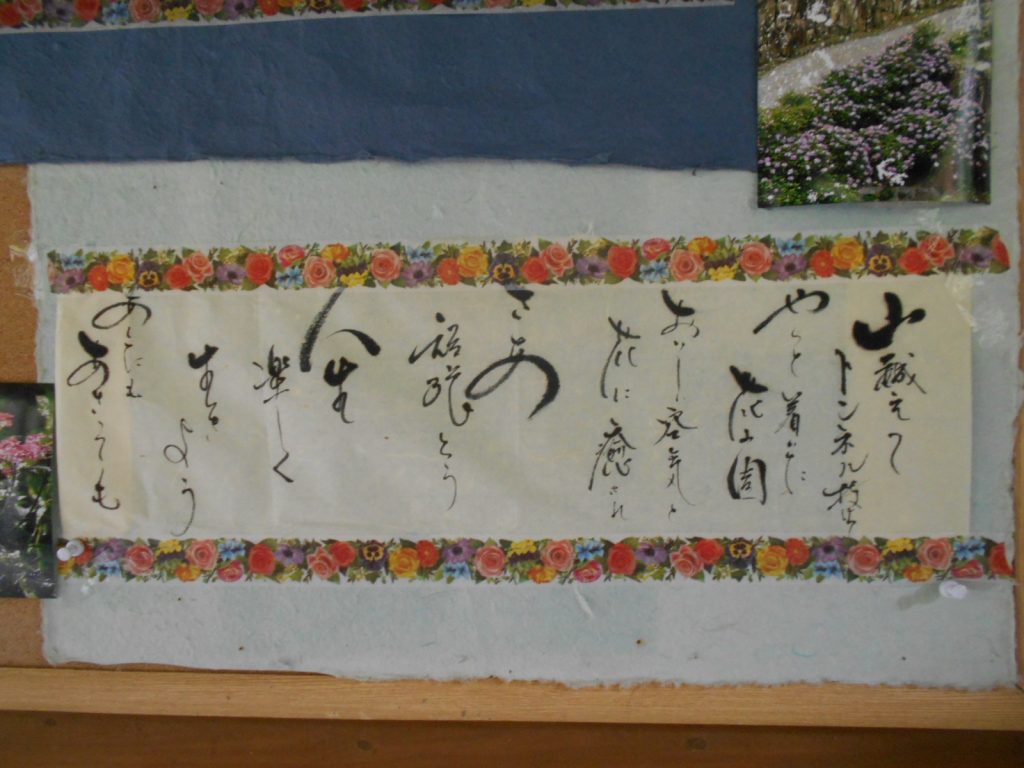 山越えて
トンネル抜け
やっと着いた
花の園
おいしい空気と
花に癒され
さあ
頑張ろう
人生
楽しく
生きよう
あしたも
あさっても